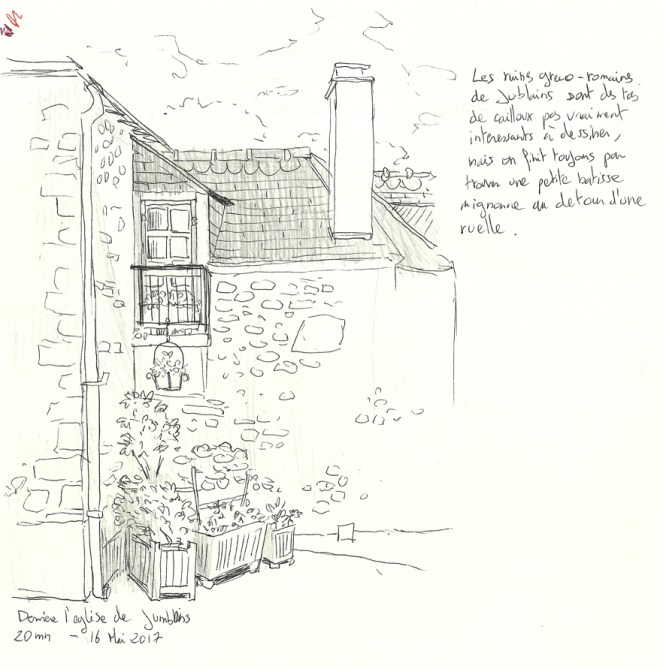 Les ruines greco-romaines
de Jublains sont des tas
de cailloux pas vraiment
interessants à dessiner,
mais on finit toujours par
trouver une petite batisse
mignonne au detour d'une
ruelle.
Derrière l'église de Jumblains
20 mn - 16 Mai 2017